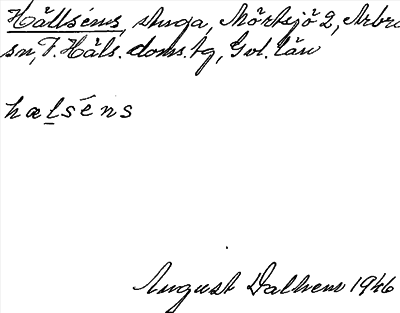 Hällséns, stuga, Mörtsjö 2, Arbrå
sn, V. Häls. doms. tg, Gvl. län
hælséns
August Dalhem 1946